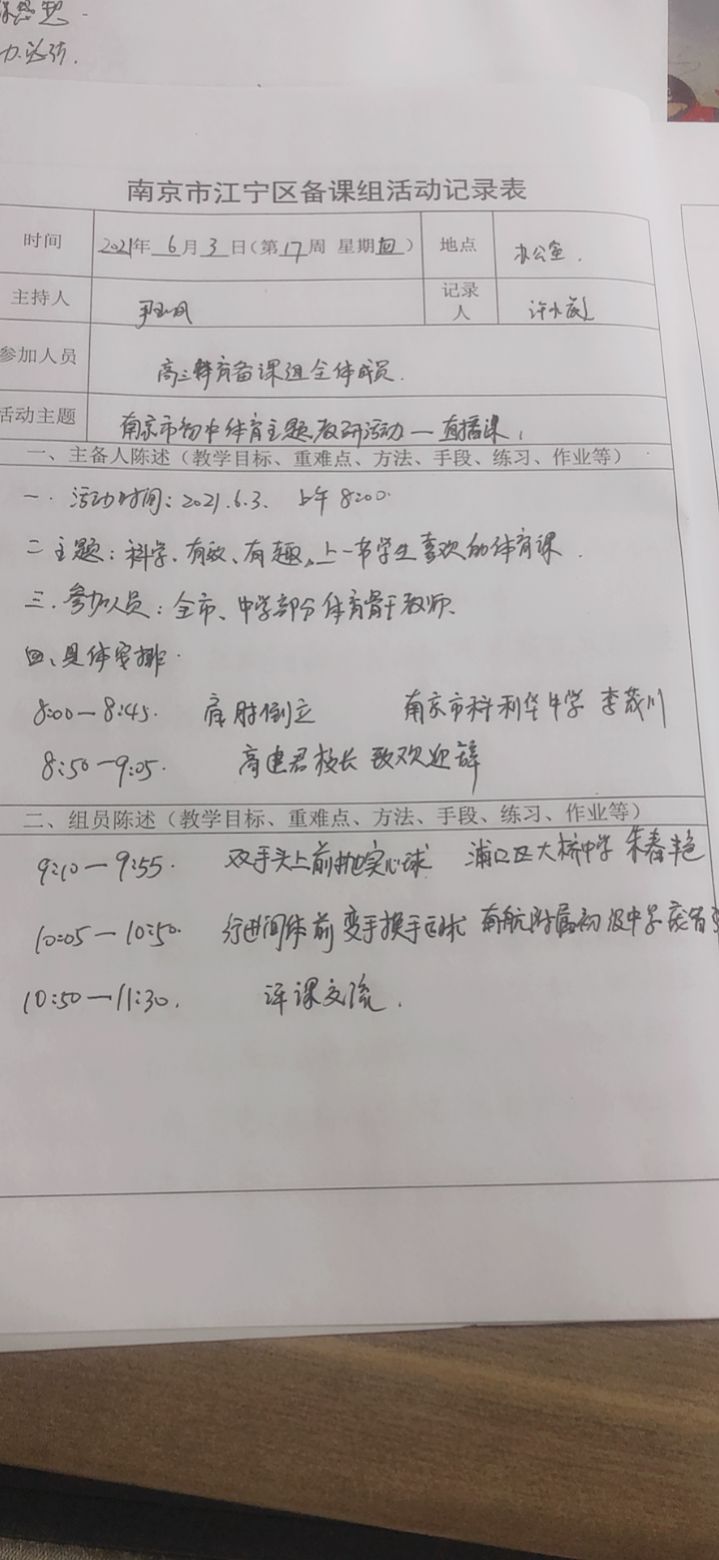 南京市江宁区备课组活动记录表
时间 2021年 6 月 3 日(第 17 周 星期 四 ) 地点 办公室.
主持人 记录人
参加人员 高三体育备课组全体成员.
活动主题 南京市初中体育主题教研活动—直播课,
一、主备人陈述(教学目标、重难点、方法、手段、练习、作业等)
一. 活动时间: 2021.6.3. 上午 8:00.
二 主题: 科学、有效、有趣,上一节学生喜欢的体育课.
三. 参加人员: 全市、中学部分体育骨干教师.
四、具体安排.
8:00—8:45. 肩肘倒立 南京市科利华中学 李茂川
8:50—9:05. 高建君校长 致欢迎辞
二、组员陈述(教学目标、重难点、方法、手段、练习、作业等)
9:10—9:55. 双手头上前抛实心球 浦口区大桥中学 朱春艳
10:05—10:50. 行进间体前变手换手运球 南航附属初级中学
10:50—11:30. 评课交流.